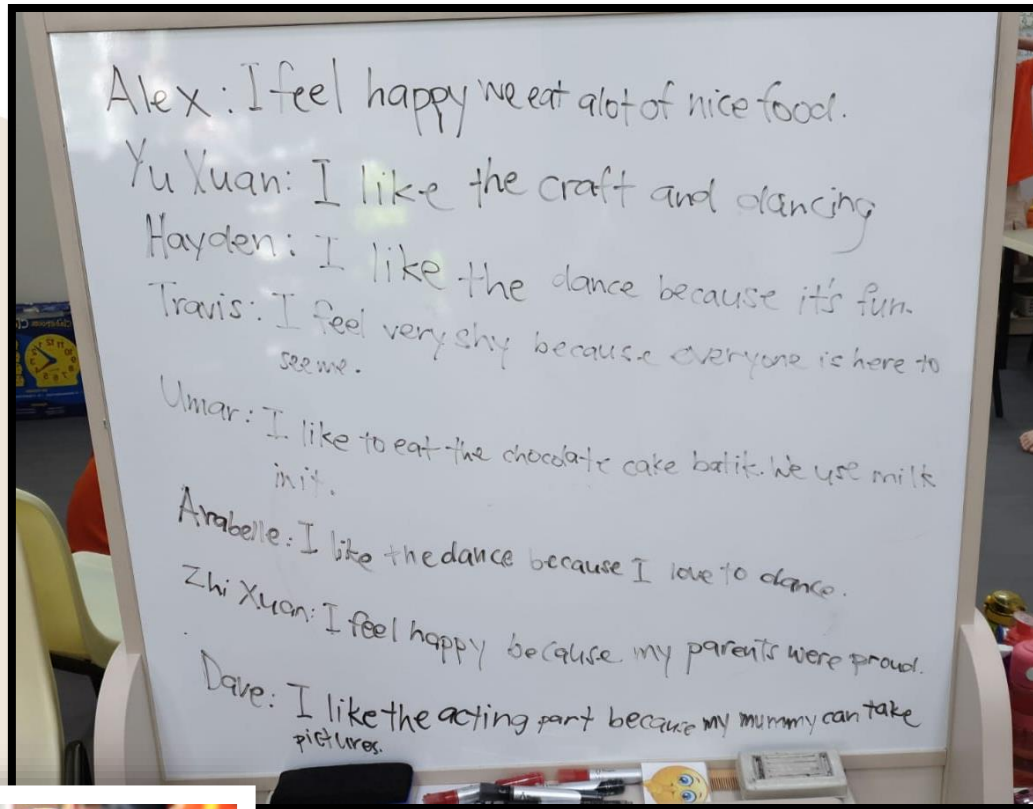 Alex: I feel happy we eat alot of nice food.
Yu Xuan: I like the craft and dancing
Hayden: I like the dance because it's fun.
Travis: I feel very shy because everyone is here to
see me.
Umar: I like to eat the chocolate cake batik. We use milk
in it.
Arabelle: I like the dance because I love to dance.
Zhi Xuan: I feel happy because my parents were proud.
Dave: I like the acting part because my mummy can take
pictures.